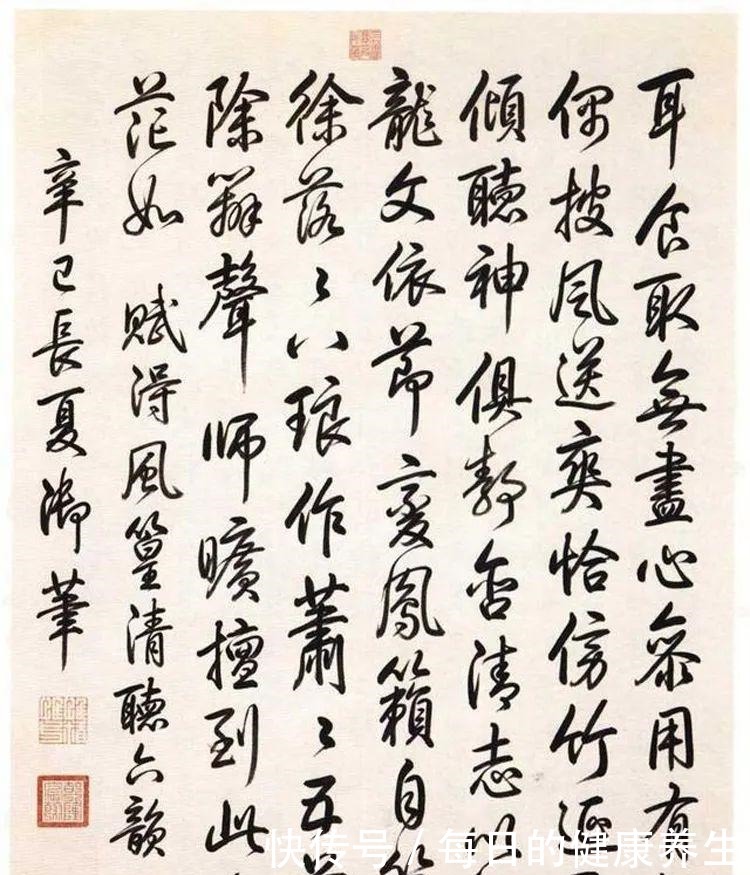 耳食取無盡心參用有
偶披風送爽恰傍竹
傾聽神俱靜含清志
龍文依節變鳳籟自
徐落〻八琅作蕭〻五
除聲師曠擅到此
茫如 賦得風篁清聽六韻
辛巳長夏御筆
乾隆宸翰
快传号 / 每日的健康养生